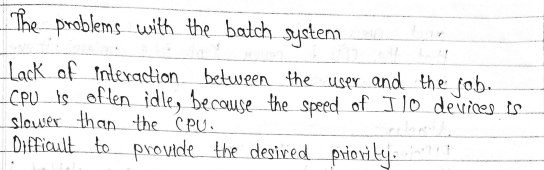 The problems with the batch system
Lack of interaction between the user and the job.
CPU is often idle, because the speed of I/O devices is
slower than the CPU.
Difficult to provide the desired priority.